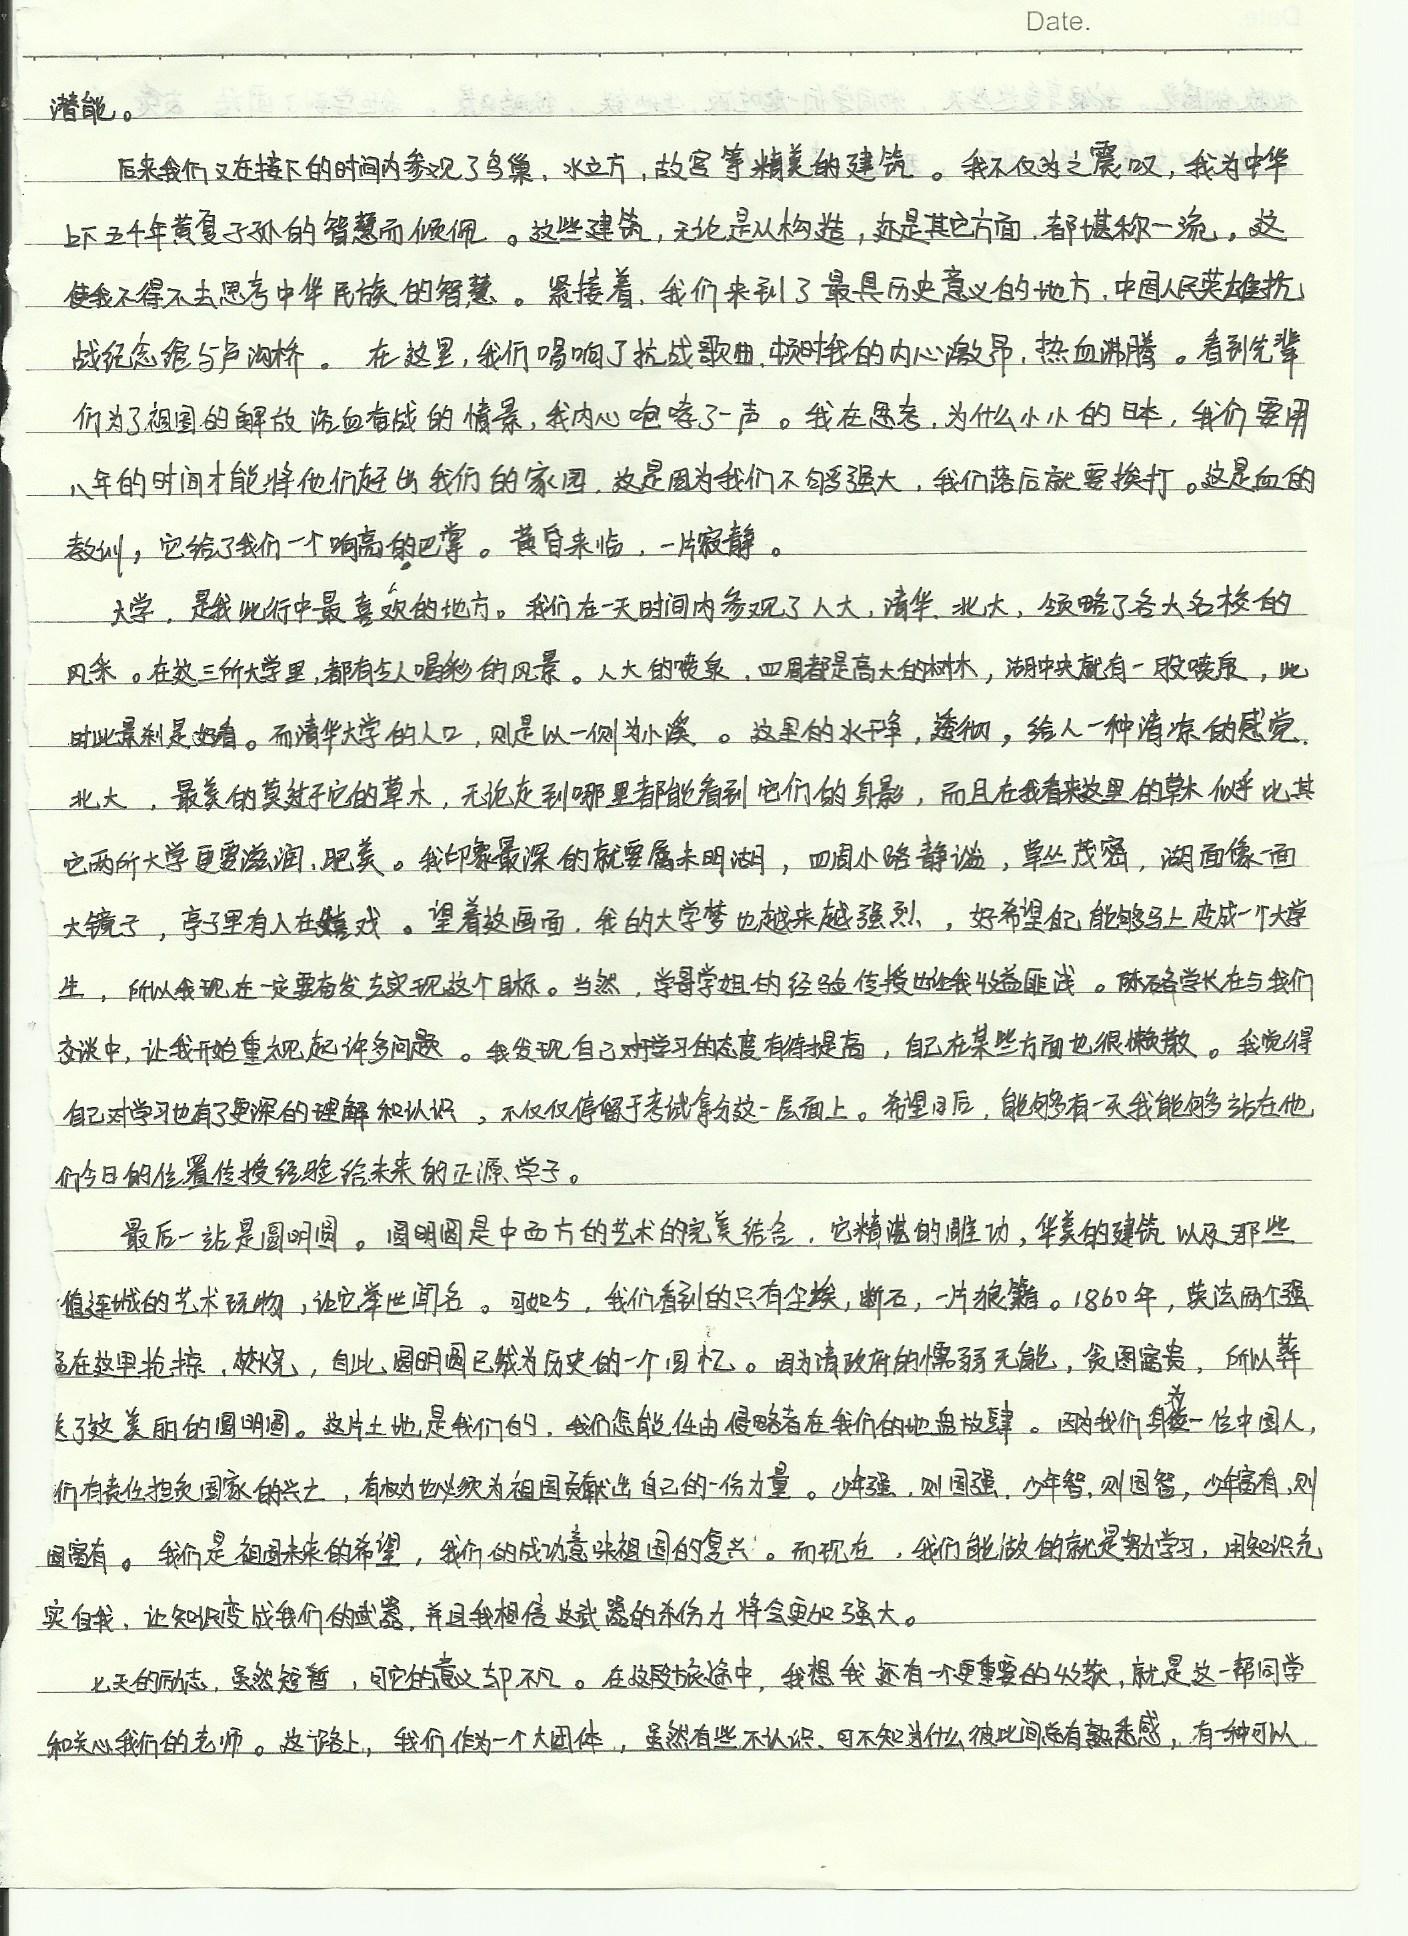 Date.
潜能。
后来我们又在接下的时间内参观了鸟巢、水立方，故宫等精美的建筑。我不仅为之震叹，我为中华
上下五千年黄夏子孙的智慧而倾佩。这些建筑，无论是从构造，还是其它方面，都堪称一流。这
使我不得不去思考中华民族的智慧。紧接着，我们来到了最具历史意义的地方，中国人民英雄抗
战纪念馆与卢沟桥。在这里，我们唱响了抗战歌曲，顿时我的内心激昂，热血沸腾。看到先辈
们为了祖国的解放浴血奋战的情景，我内心咆哮了一声。我在思考，为什么小小的日本，我们要用
八年的时间才能将他们赶出我们的家园，这是因为我们不够强大，我们落后就要挨打。这是血的
教训，它给了我们一个响亮的巴掌。黄昏来临，一片寂静。
大学，是我此行中最喜欢的地方。我们在一天时间内参观了人大，清华、北大，领略了各大名校的
风采。在这三所大学里，都有令人喝彩的风景。人大的喷泉，四周都是高大的树木，湖中央就有一股喷泉，此
时此景刹是好看。而清华大学的入口，则是以一侧为小溪。这里的水干净，透彻，给人一种清凉的感觉。
北大，最美的莫过于它的草木，无论走到哪里都能看到它们的身影，而且在我看来这里的草木似乎比其
它两所大学更要滋润、肥美。我印象最深的就要属未明湖，四周小路静谧，草丛茂密，湖面像一面
大镜子，亭子里有人在嬉戏。望着这画面，我的大学梦也越来越强烈，好希望自己能够马上变成一个大学
生，所以我现在一定要奋发去实现这个目标。当然，学哥学姐的经验传授也让我收益匪浅。陈 学长在与我们
交谈中，让我开始重视起许多问题。我发现自己对学习的态度有待提高，自己在某些方面也很懒散。我觉得
自己对学习也有了更深的理解和认识，不仅仅停留于考试拿分这一层面上。希望日后，能够有一天我能够站在他
们今日的位置传授经验给未来的正源学子。
最后一站是圆明圆。圆明圆是中西方的艺术的完美结合，它精湛的雕功，华美的建筑以及那些
值连城的艺术玩物，让它举世闻名。可如今，我们看到的只有尘埃，断石，一片狼籍。1860年，英法两个强
盗在这里抢掠，焚烧，自此，圆明圆已成为历史的一个回忆。因为清政府的懦弱无能，贪图富贵，所以葬
送了这美丽的圆明圆。这片土地是我们的，我们怎能任由侵略者在我们的地盘放肆。因为我们身为一位中国人，
们有责任担负国家的兴亡，有权力也必须为祖国贡献出自己的一份力量。少年强，则国强，少年智，则国智，少年富有，则
国富有。我们是祖国未来的希望，我们的成功意味祖国的复兴。而现在，我们能做的就是努力学习，用知识充
实自我，让知识变成我们的武器，并且我相信这武器的杀伤力将会更加强大。
七天的励志，虽然短暂，可它的意义却不凡。在这段旅途中，我想我还有一个更重要的收获，就是这一帮同学
和关心我们的老师。这一路上，我们作为一个大团体，虽然有些不认识，可不知为什么彼此间总有熟悉感，有一种可以